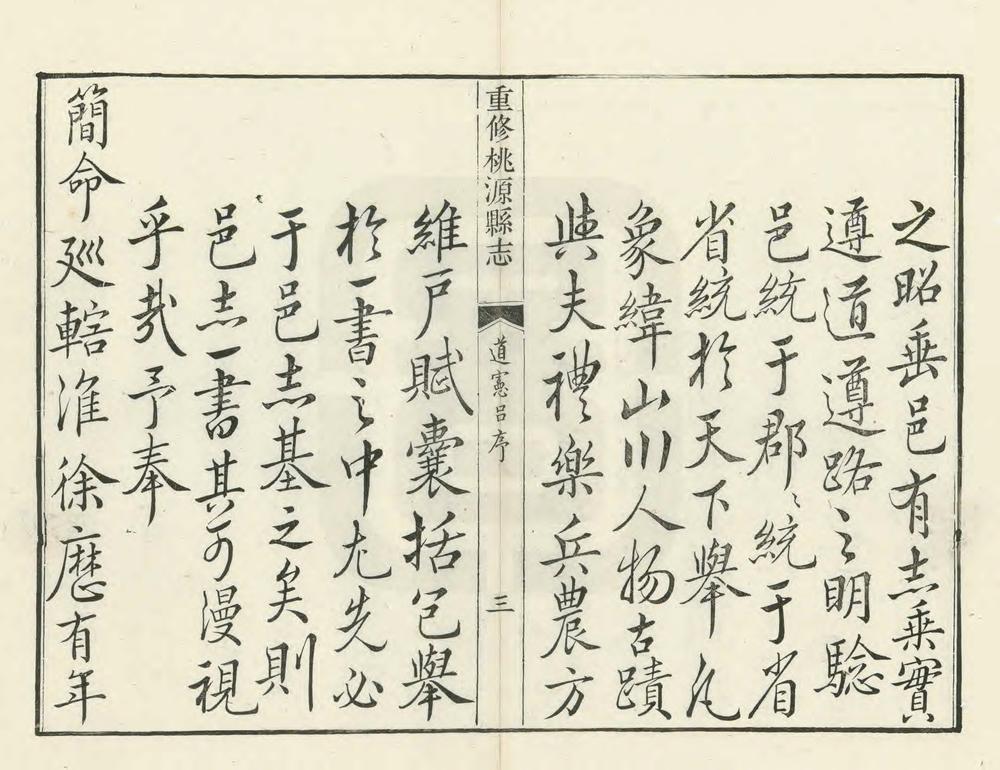 之昭垂邑有志乘實
遵道遵路之明驗
邑統于郡〻統于省
省統於天下舉凡
象緯山川人物古蹟
與夫禮樂兵農方
重修桃源縣志
道憲呂序
三
維戶賦囊括包舉
於一書之中尤先必
于邑志基之矣則
邑志一書其可漫視
乎哉予奉
簡命廵轄淮徐歷有年